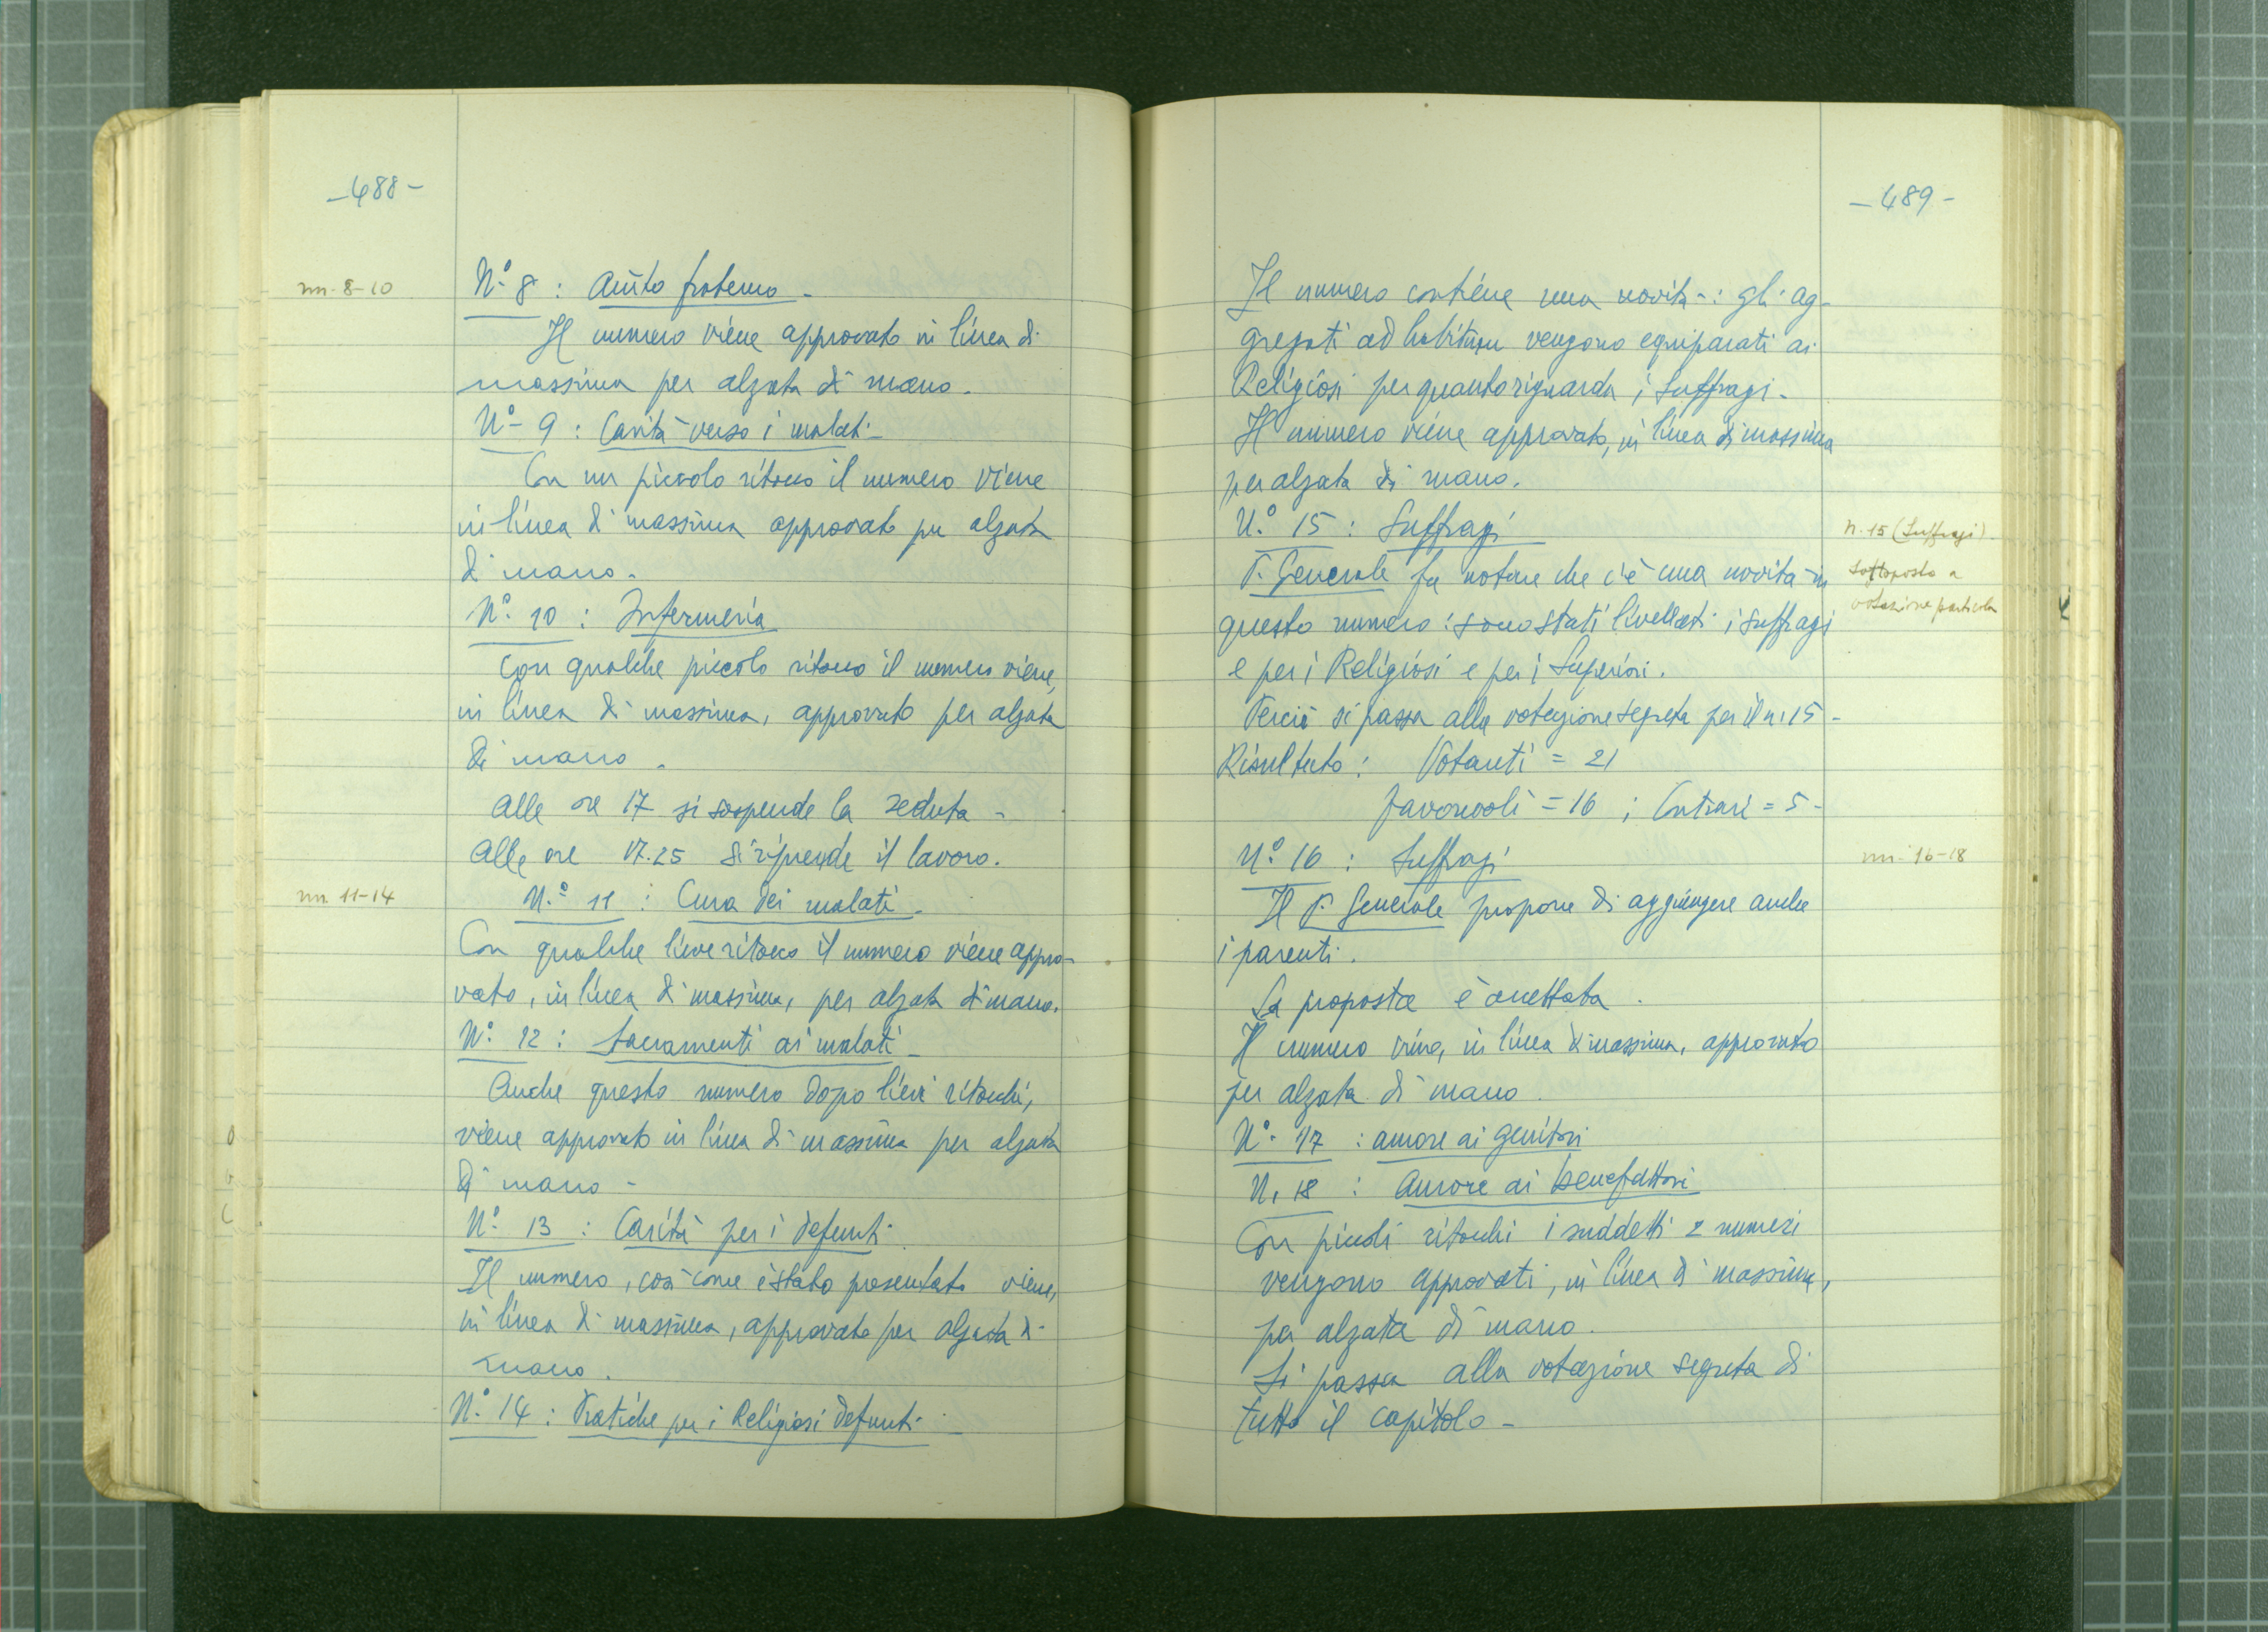 -488-
nn. 8-10
N.° 8 : Aiuto fraterno -
Il numero viene approvato in linea di
massima per alzata di mano.
N.° 9 : Carità verso i malati -
Con un piccolo ritocco il numero viene
in linea di massima approvato per alzata
di mano.
N.° 10 : Infermeria
Con qualche piccolo ritocco il numero viene,
in linea di massima, approvato per alzata
di mano.
Alle ore 17 si sospende la seduta -
Alle ore 17.25 si riprende il lavoro.
nn. 11-14
N.° 11 : Cura dei malati -
Con qualche lieve ritocco il numero viene appro-
vato, in linea di massima, per alzata di mano.
N.° 12 : Sacramenti ai malati -
Anche questo numero dopo lievi ritocchi,
viene approvato in linea di massima per alzata
di mano -
N.° 13 : Carità per i defunti
Il numero, così come è stato presentato viene,
in linea di massima, approvato per alzata di
mano.
N.° 14 : Pratiche per i Religiosi defunti -
-489-
Il numero contiene una novità : gli ag-
gregati ad habitum vengono equiparati ai
Religiosi per quanto riguarda i suffragi -
Il numero viene approvato, in linea di massima
per alzata di mano.
N.° 15 : Suffragi
n. 15 (Suffragi)
sottoposto a
votazione particolare
P. Generale fa notare che c'è una novità in
questo numero : sono stati livellati i suffragi
e per i Religiosi e per i Superiori.
Perciò si passa alla votazione segreta per il n. 15 -
Risultato : Votanti = 21
favorevoli = 16 ; Contrari = 5 -
N.° 16 : Suffragi
nn. 16-18
Il P. Generale propone di aggiungere anche
i parenti.
La proposta è accettata.
Il numero viene, in linea di massima, approvato
per alzata di mano.
N.° 17 : amore ai genitori
N. 18 : Amore ai benefattori
Con piccoli ritocchi i suddetti 2 numeri
vengono approvati, in linea di massima,
per alzata di mano.
Si passa alla votazione segreta di
tutto il capitolo -